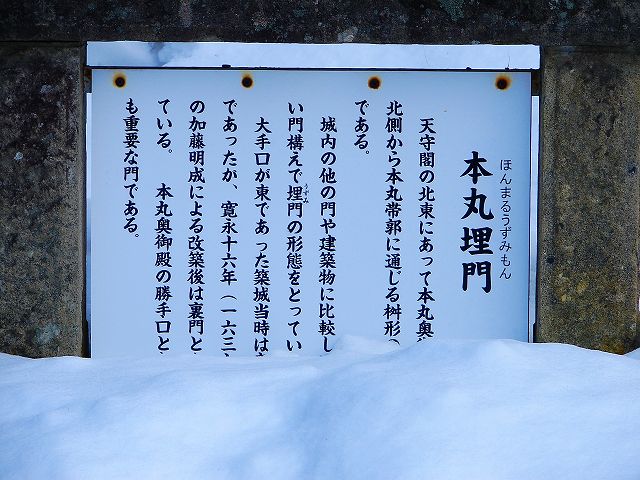 ほんまるうずみもん
本丸埋門
天守閣の北東にあって本丸奥
北側から本丸帯郭に通じる桝形
である。
城内の他の門や建築物に比較し
い門構えで埋門の形態をとってい
うずみ
大手口が東であった築城当時は
であったが、寛永十六年（一六三
の加藤明成による改築後は裏門と
ている。　本丸奥御殿の勝手口と
も重要な門である。